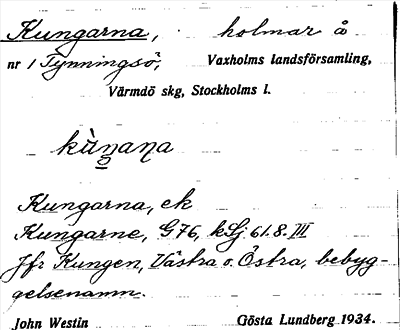 Kungarna, holmar å
nr 1 Tynningsö, Vaxholms landsförsamling,
Värmdö skg, Stockholms l.
Kungarna, ek
Kungarne, G76, kSj. 61.8. III
Jfr Kungen, Västra o. Östra, bebyg-
gelsenamn.
John Westin Gösta Lundberg 1934.